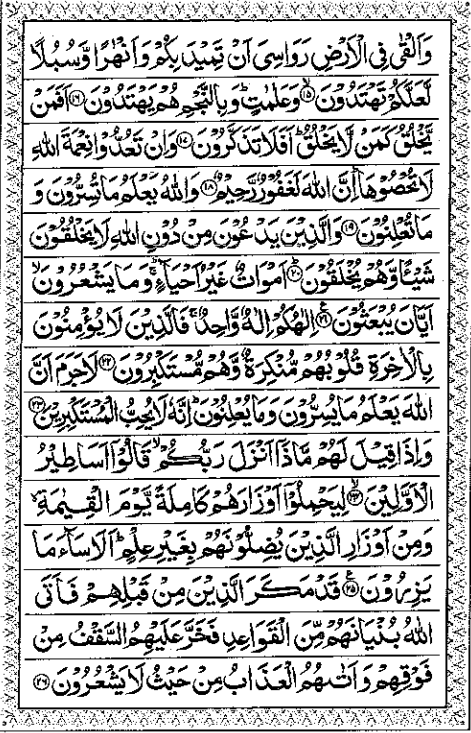 وَاَلْقٰى فِى الْاَرْضِ رَوَاسِىَ اَنْ تَمِيْدَ بِكُمْ وَاَنْهٰرًا وَّسُبُلًا
لَّعَلَّكُمْ تَهْتَدُوْنَ ۙ﴿۱۵﴾ وَعَلٰمٰتٍ ؕ وَبِالنَّجْمِ هُمْ يَهْتَدُوْنَ ﴿۱۶﴾ اَفَمَنْ
يَّخْلُقُ كَمَنْ لَّا يَخْلُقُ ؕ اَفَلَا تَذَكَّرُوْنَ ﴿۱۷﴾ وَاِنْ تَعُدُّوْا نِعْمَةَ اللّٰهِ
لَا تُحْصُوْهَا ؕ اِنَّ اللّٰهَ لَغَفُوْرٌ رَّحِيْمٌ ﴿۱۸﴾ وَاللّٰهُ يَعْلَمُ مَا تُسِرُّوْنَ وَ
مَا تُعْلِنُوْنَ ﴿۱۹﴾ وَالَّذِيْنَ يَدْعُوْنَ مِنْ دُوْنِ اللّٰهِ لَا يَخْلُقُوْنَ
شَيْـًٔا وَّهُمْ يُخْلَقُوْنَ ؕ﴿۲۰﴾ اَمْوَاتٌ غَيْرُ اَحْيَآءٍ ۚ وَمَا يَشْعُرُوْنَ ۙ
اَيَّانَ يُبْعَثُوْنَ ﴿۲۱﴾ اِلٰهُكُمْ اِلٰهٌ وَّاحِدٌ ۚ فَالَّذِيْنَ لَا يُؤْمِنُوْنَ
بِالْاٰخِرَةِ قُلُوْبُهُمْ مُّنْكِرَةٌ وَّهُمْ مُّسْتَكْبِرُوْنَ ﴿۲۲﴾ لَا جَرَمَ اَنَّ
اللّٰهَ يَعْلَمُ مَا يُسِرُّوْنَ وَمَا يُعْلِنُوْنَ ؕ اِنَّهٗ لَا يُحِبُّ الْمُسْتَكْبِرِيْنَ ﴿۲۳﴾
وَاِذَا قِيْلَ لَهُمْ مَّاذَاۤ اَنْزَلَ رَبُّكُمْ ۙ قَالُوْۤا اَسَاطِيْرُ
الْاَوَّلِيْنَ ۙ﴿۲۴﴾ لِيَحْمِلُوْۤا اَوْزَارَهُمْ كَامِلَةً يَّوْمَ الْقِيٰمَةِ ۙ
وَمِنْ اَوْزَارِ الَّذِيْنَ يُضِلُّوْنَهُمْ بِغَيْرِ عِلْمٍ ؕ اَلَا سَآءَ مَا
يَزِرُوْنَ ﴿۲۵﴾ قَدْ مَكَرَ الَّذِيْنَ مِنْ قَبْلِهِمْ فَاَتَى
اللّٰهُ بُنْيَانَهُمْ مِّنَ الْقَوَاعِدِ فَخَرَّ عَلَيْهِمُ السَّقْفُ مِنْ
فَوْقِهِمْ وَاَتٰىهُمُ الْعَذَابُ مِنْ حَيْثُ لَا يَشْعُرُوْنَ ﴿۲۶﴾